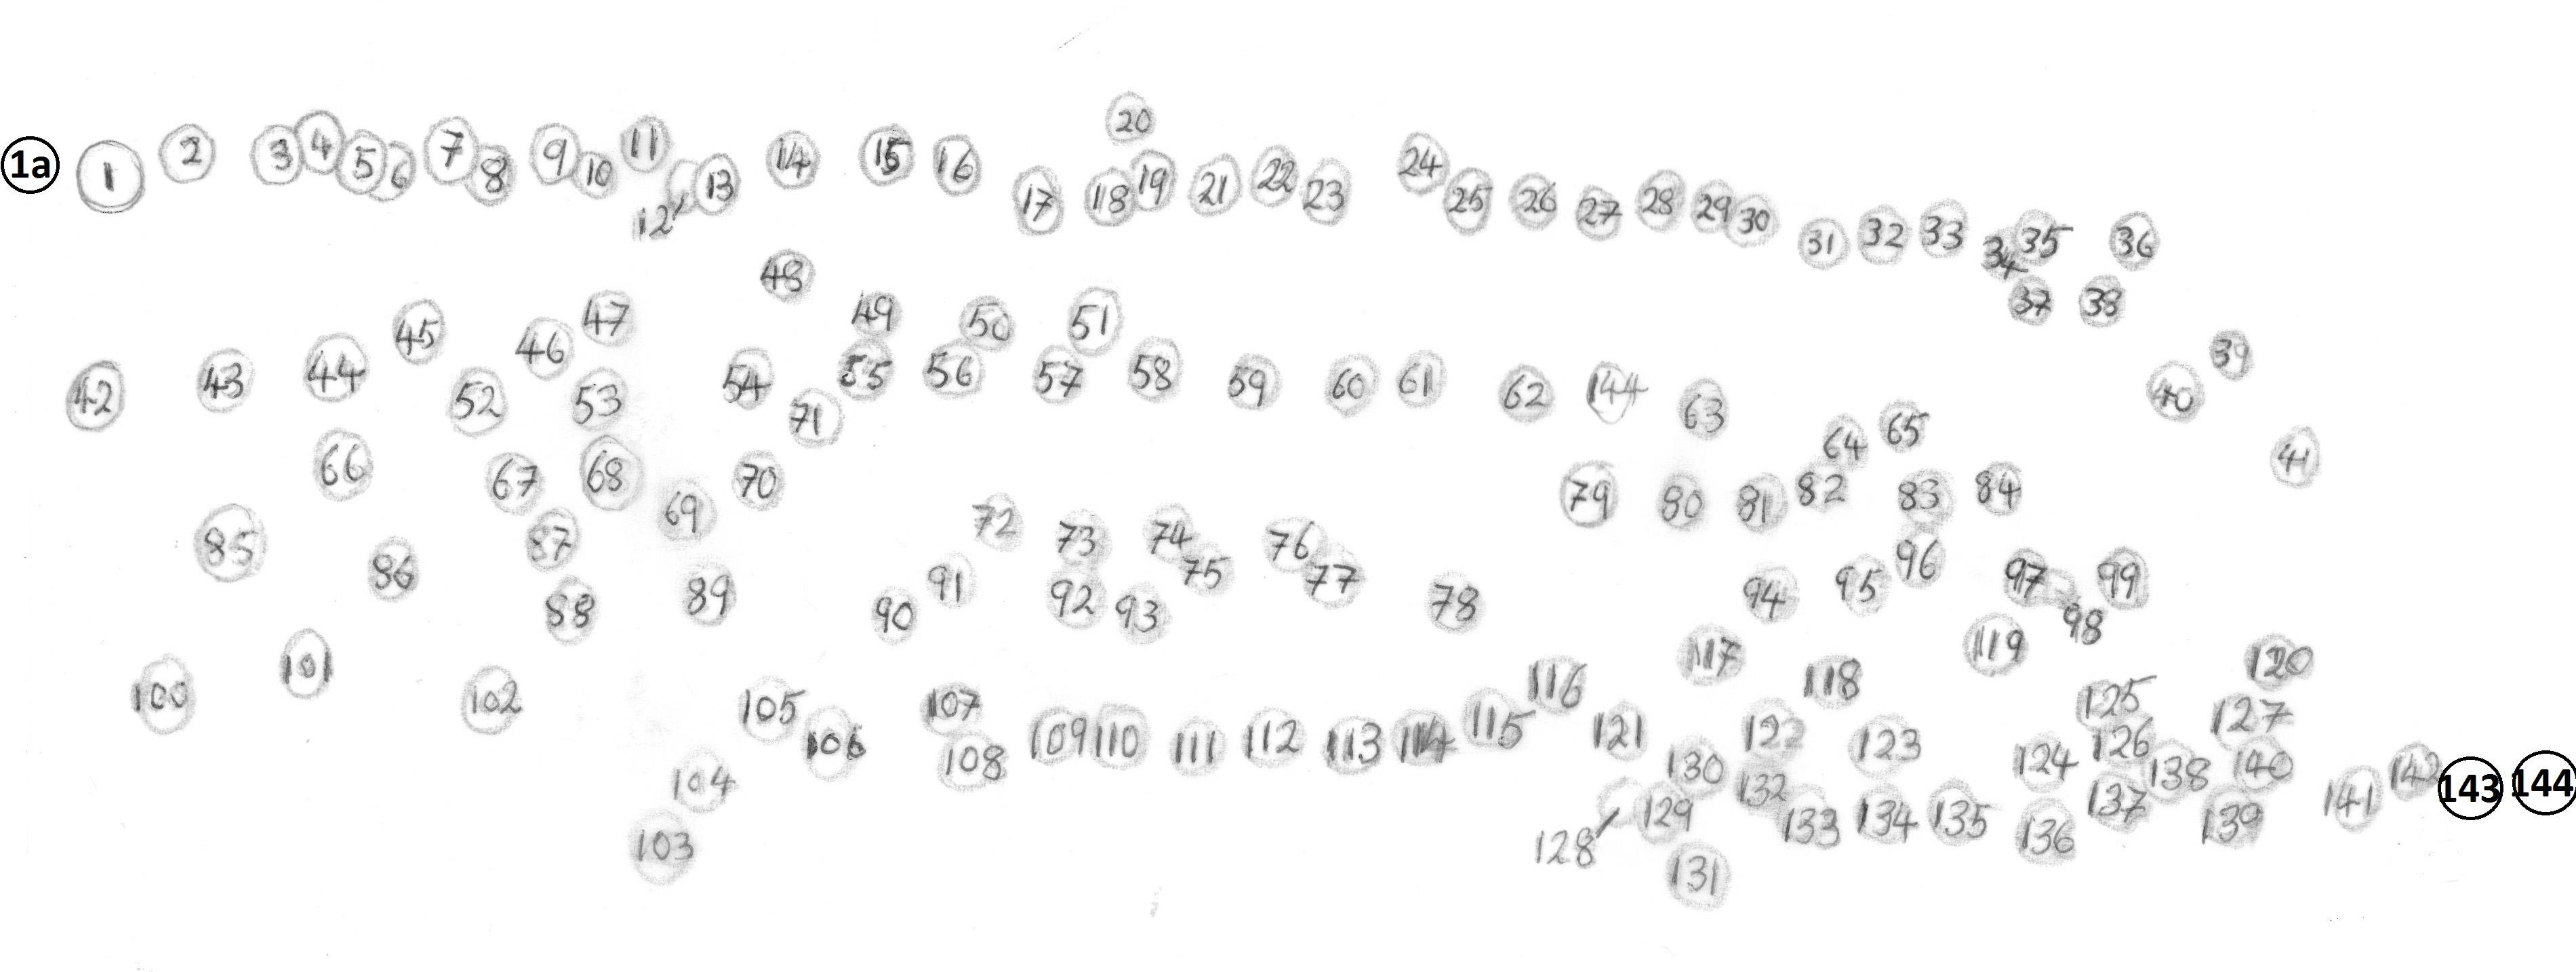 20
1a 1 2 3 4 5 6 7 8 9 10 11 12 13 14 15 16 17 18 19 21 22 23 24 25 26 27 28 29 30 31 32 33 34 35 36
37 38
48
47 49 50 51
45 46
42 43 44 52 53 54 55 56 57 58 59 60 61 62 144 63 40 39
71 64 65 41
66 67 68 69 70 79 80 81 82 83 84
85 86 87 72 73 74 75 76 77 96
88 89 90 91 92 93 78 94 95 97 98 99
100 101 102 117 118 119 120
105 106 107 108 109 110 111 112 113 114 115 116 121 122 123 125 127
104 130 132 124 126 138 140 142 143 144
103 128 129 133 134 135 136 137 139 141
131